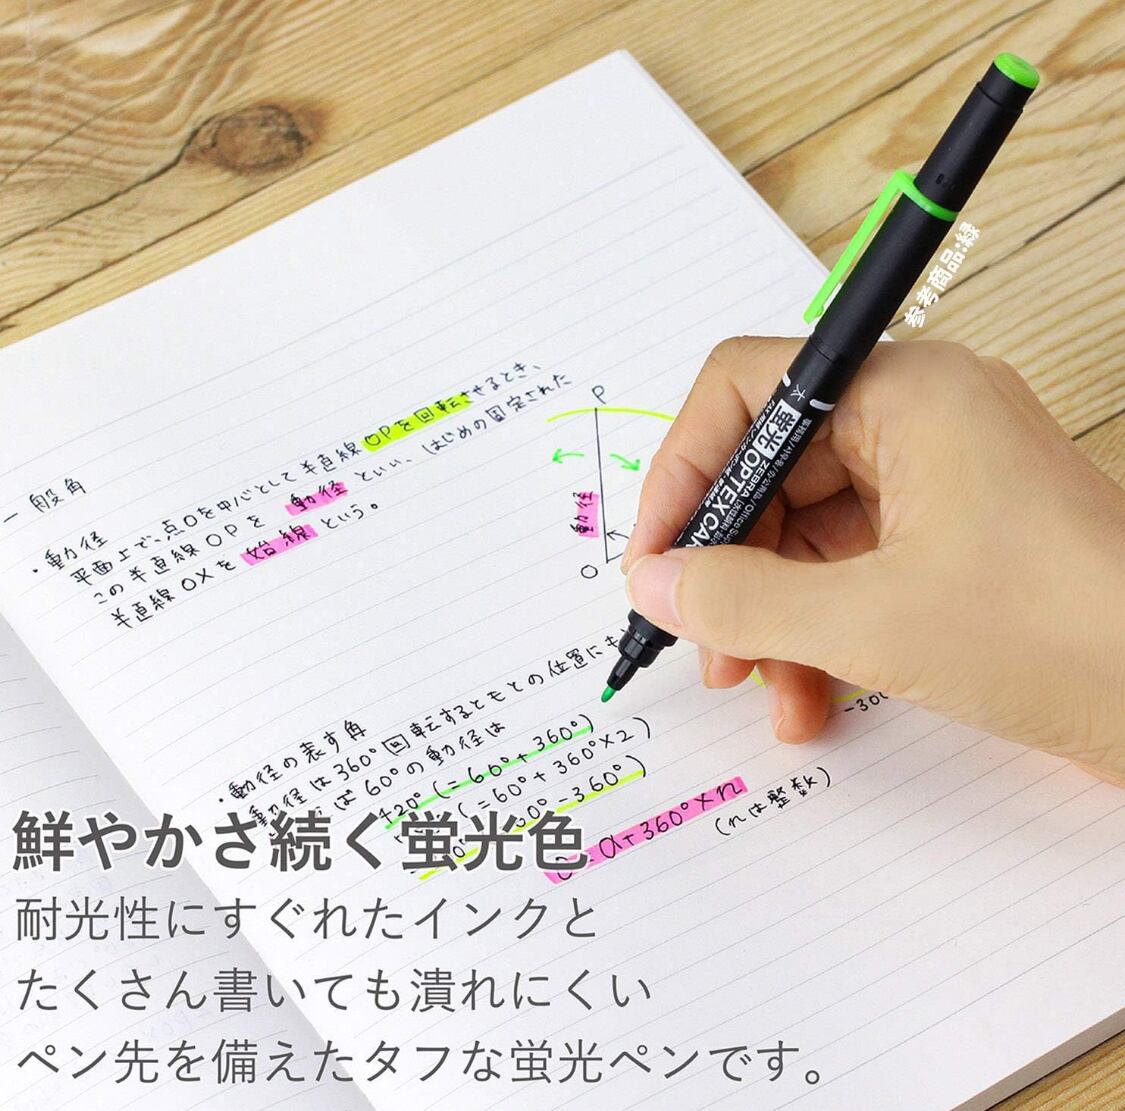 参考商品:緑
太
蛍光 OPTEX CAR
ZEBRA
P
一般角
・動径
平面上で、点Oを中心として半直線OPを回転させるとき、
この半直線OPを 動径 といい、はじめの固定された
半直線OXを 始線 という。
動径
O
・動径の表す角
動径は360°回転するともとの位置にも
は60°の動径は
420°(=60°+360°)
(=60°+360°×2)
-360°)
α+360°×n
(nは整数)
鮮やかさ続く蛍光色
耐光性にすぐれたインクと
たくさん書いても潰れにくい
ペン先を備えたタフな蛍光ペンです。